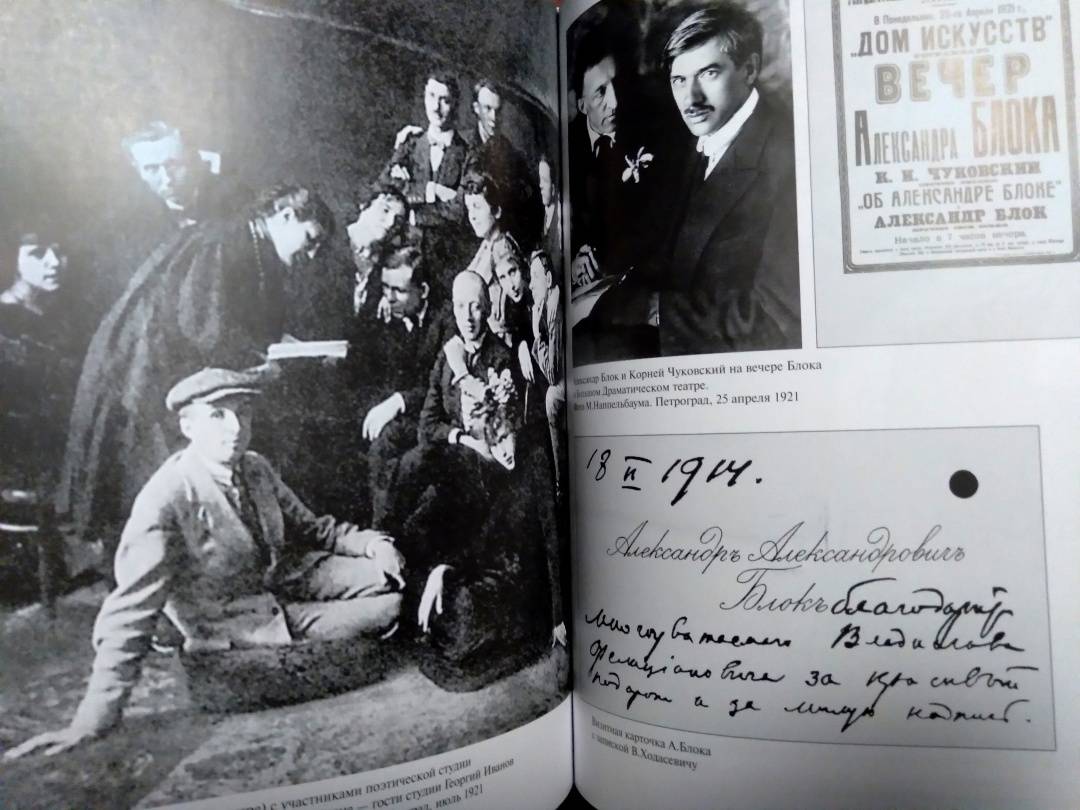 с участниками поэтической студии
— гости студии Георгий Иванов
июль 1921
В Понедельник, 25-го Апреля 1921 г.,
"ДОМ ИСКУССТВ"
ВЕЧЕР
АЛЕКСАНДРА БЛОКА
К. И. ЧУКОВСКИЙ
"ОБ АЛЕКСАНДРЕ БЛОКЕ"
АЛЕКСАНДР БЛОК
Начало в 7 часов вечера.
Александр Блок и Корней Чуковский на вечере Блока
в Большом Драматическом театре.
Фото М.Наппельбаума. Петроград, 25 апреля 1921
18 II 1914.
Александръ Александровичъ
Блокъ благодаритъ
многоуважаемаго Владислава
Фелиціановича за красивый
подарок и за милую надпись.
Визитная карточка А.Блока
с запиской В.Ходасевичу